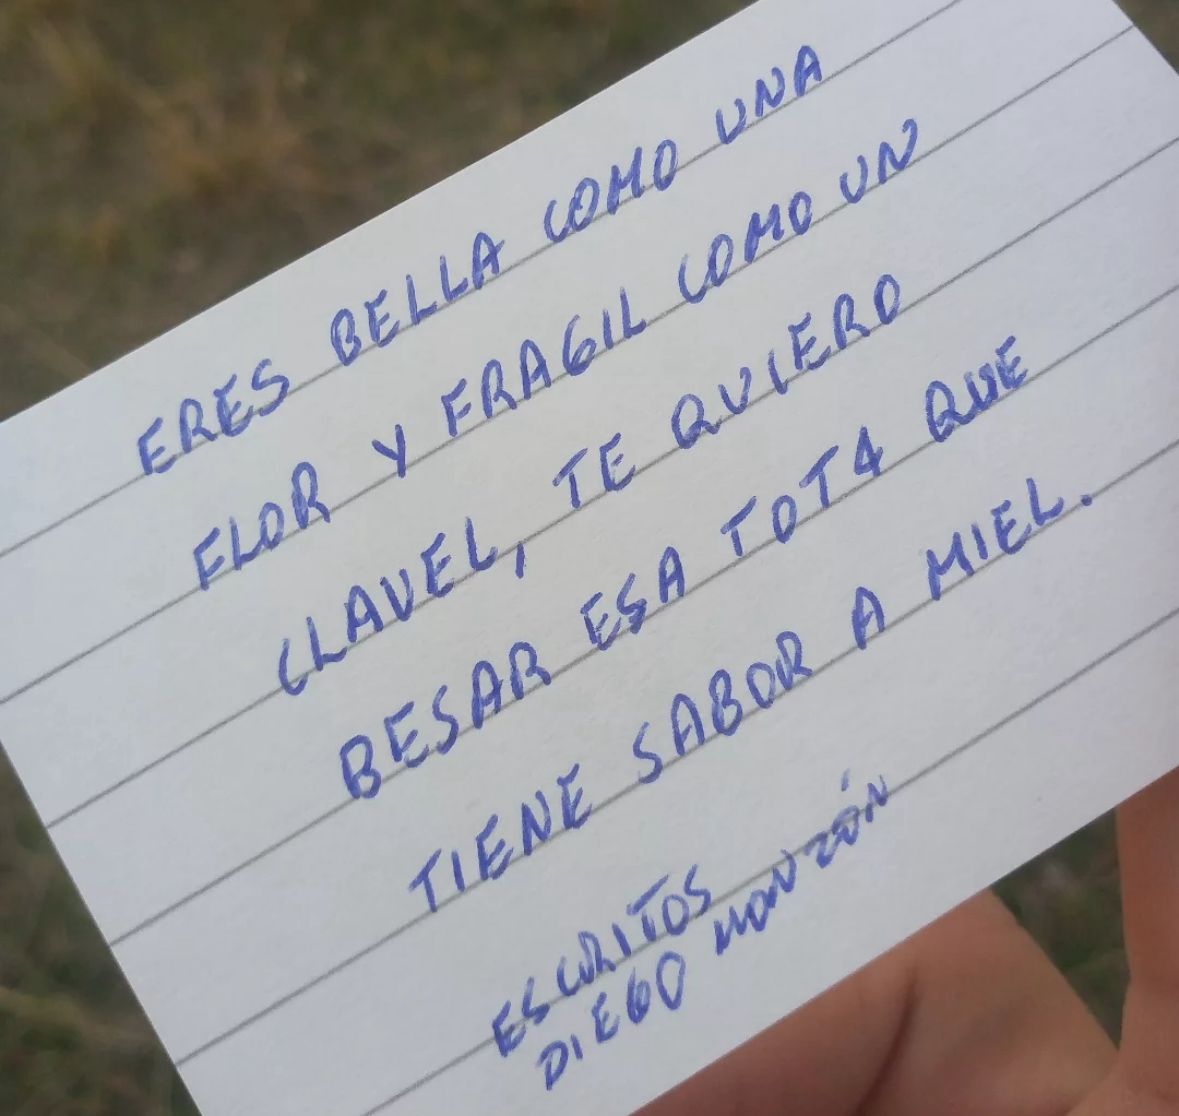 ERES BELLA COMO UNA
FLOR Y FRAGIL COMO UN
CLAVEL, TE QUIERO
BESAR ESA TOTA QUE
TIENE SABOR A MIEL.
ESCRITOS
DIEGO MONZÓN